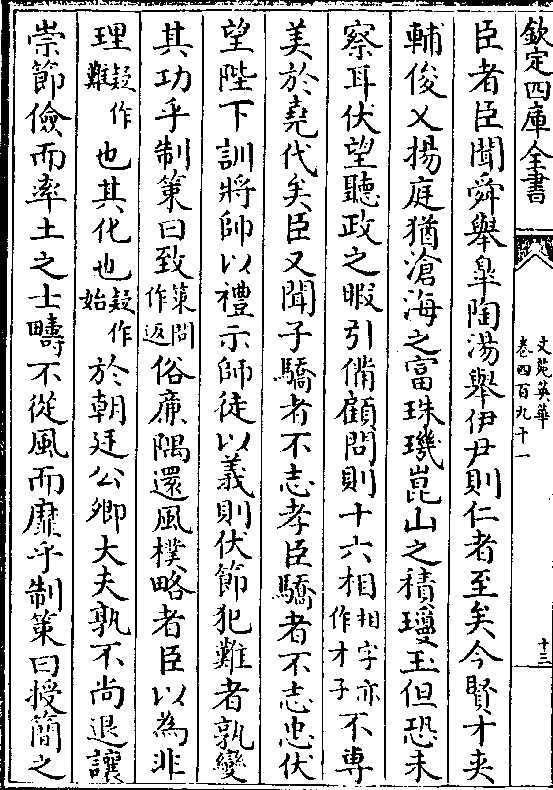 欽定四庫全書
文苑英華
卷四百九十一
十三
臣者臣聞舜舉臯陶湯舉伊尹則仁者至矣今賢才夾
輔俊乂揚庭猶滄海之富珠璣崑山之積瓊玉但恐未
察耳伏望聽政之暇引備顧問則十六相相字亦作才子不専
美於堯代矣臣又聞子驕者不志孝臣驕者不志忠伏
望陛下訓將帥以禮示師徒以義則伏節犯難者孰變
其功乎制策曰致策問作返俗亷隅還風樸略者臣以為非
理疑作難也其化也疑作始於朝廷公卿大夫孰不尚退讓
崇節儉而率土之士疇不從風而靡乎制策曰授簡之